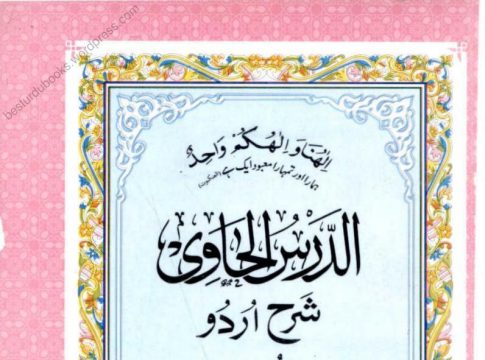 besturdubooks.wordpress.com
اِلٰهُنَا وَاِلٰهُكُمْ وَاحِدٌ
ہمارا اور تمہارا معبود ایک ہے (العنکبوت)
الدَّرْسُ الحَاوِی
شرح اُردو